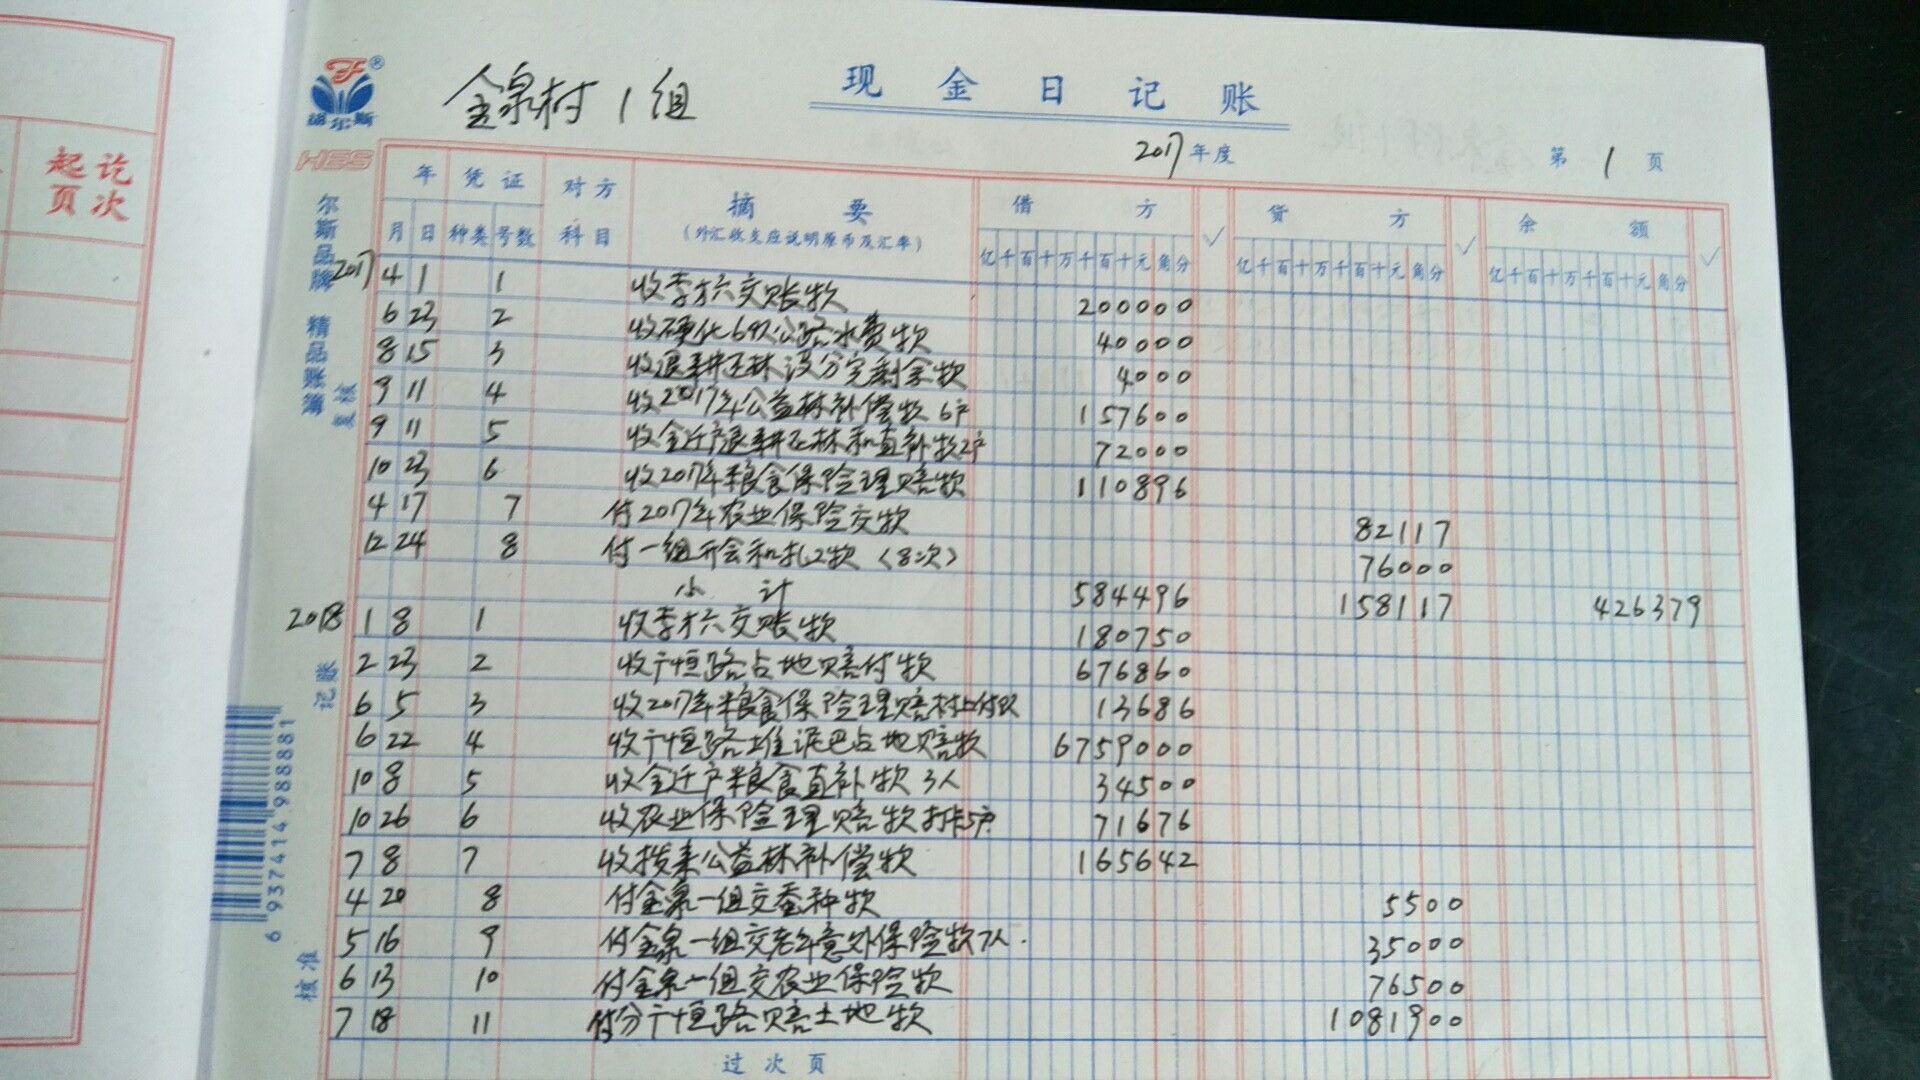 起讫
页次
福尔斯
HES
金泉村1组
现金日记账
2017年度
第1页
年 凭证 对方 摘要 借方 ✓ 贷方 ✓ 余额 ✓
月 日 种类 号数 科目 (外汇收支应说明原币及汇率) 亿千百十万千百十元角分 亿千百十万千百十元角分 亿千百十万千百十元角分
2017 4 1 1 收李才六交账款 200000
6 23 2 收硬化692公路水费款 40000
8 15 3 收退耕还林没分完剩余款 4000
9 11 4 收2017年公益林补偿款6户 157600
9 11 5 收全迁户退耕还林和直补款2户 72000
10 23 6 收2017年粮食保险理赔款 110896
4 17 7 付2017年农业保险交款 82117
12 24 8 付一组开会和扎工款(8次) 76000
小计 584496 158117 426379
2018 1 8 1 收李才六交账款 180750
2 23 2 收广恒路占地赔付款 676860
6 5 3 收2017年粮食保险理赔村上付 13686
6 22 4 收广恒路堆泥巴占地赔款 6759000
10 8 5 收全迁户粮食直补款3人 34500
10 26 6 收农业保险理赔款打卡5户 71676
7 8 7 收拨来公益林补偿款 165642
4 20 8 付金泉一组交蚕种款 5500
5 16 9 付金泉一组交老年意外保险款7人. 35000
6 13 10 付金泉一组交农业保险款 76500
7 18 11 付分广恒路赔土地款 1081900
过次页
尔斯品牌 精品课
复核
记账
核准
6 937414 988881